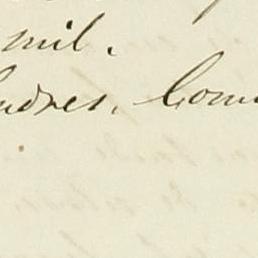 mil.
ndres. Com